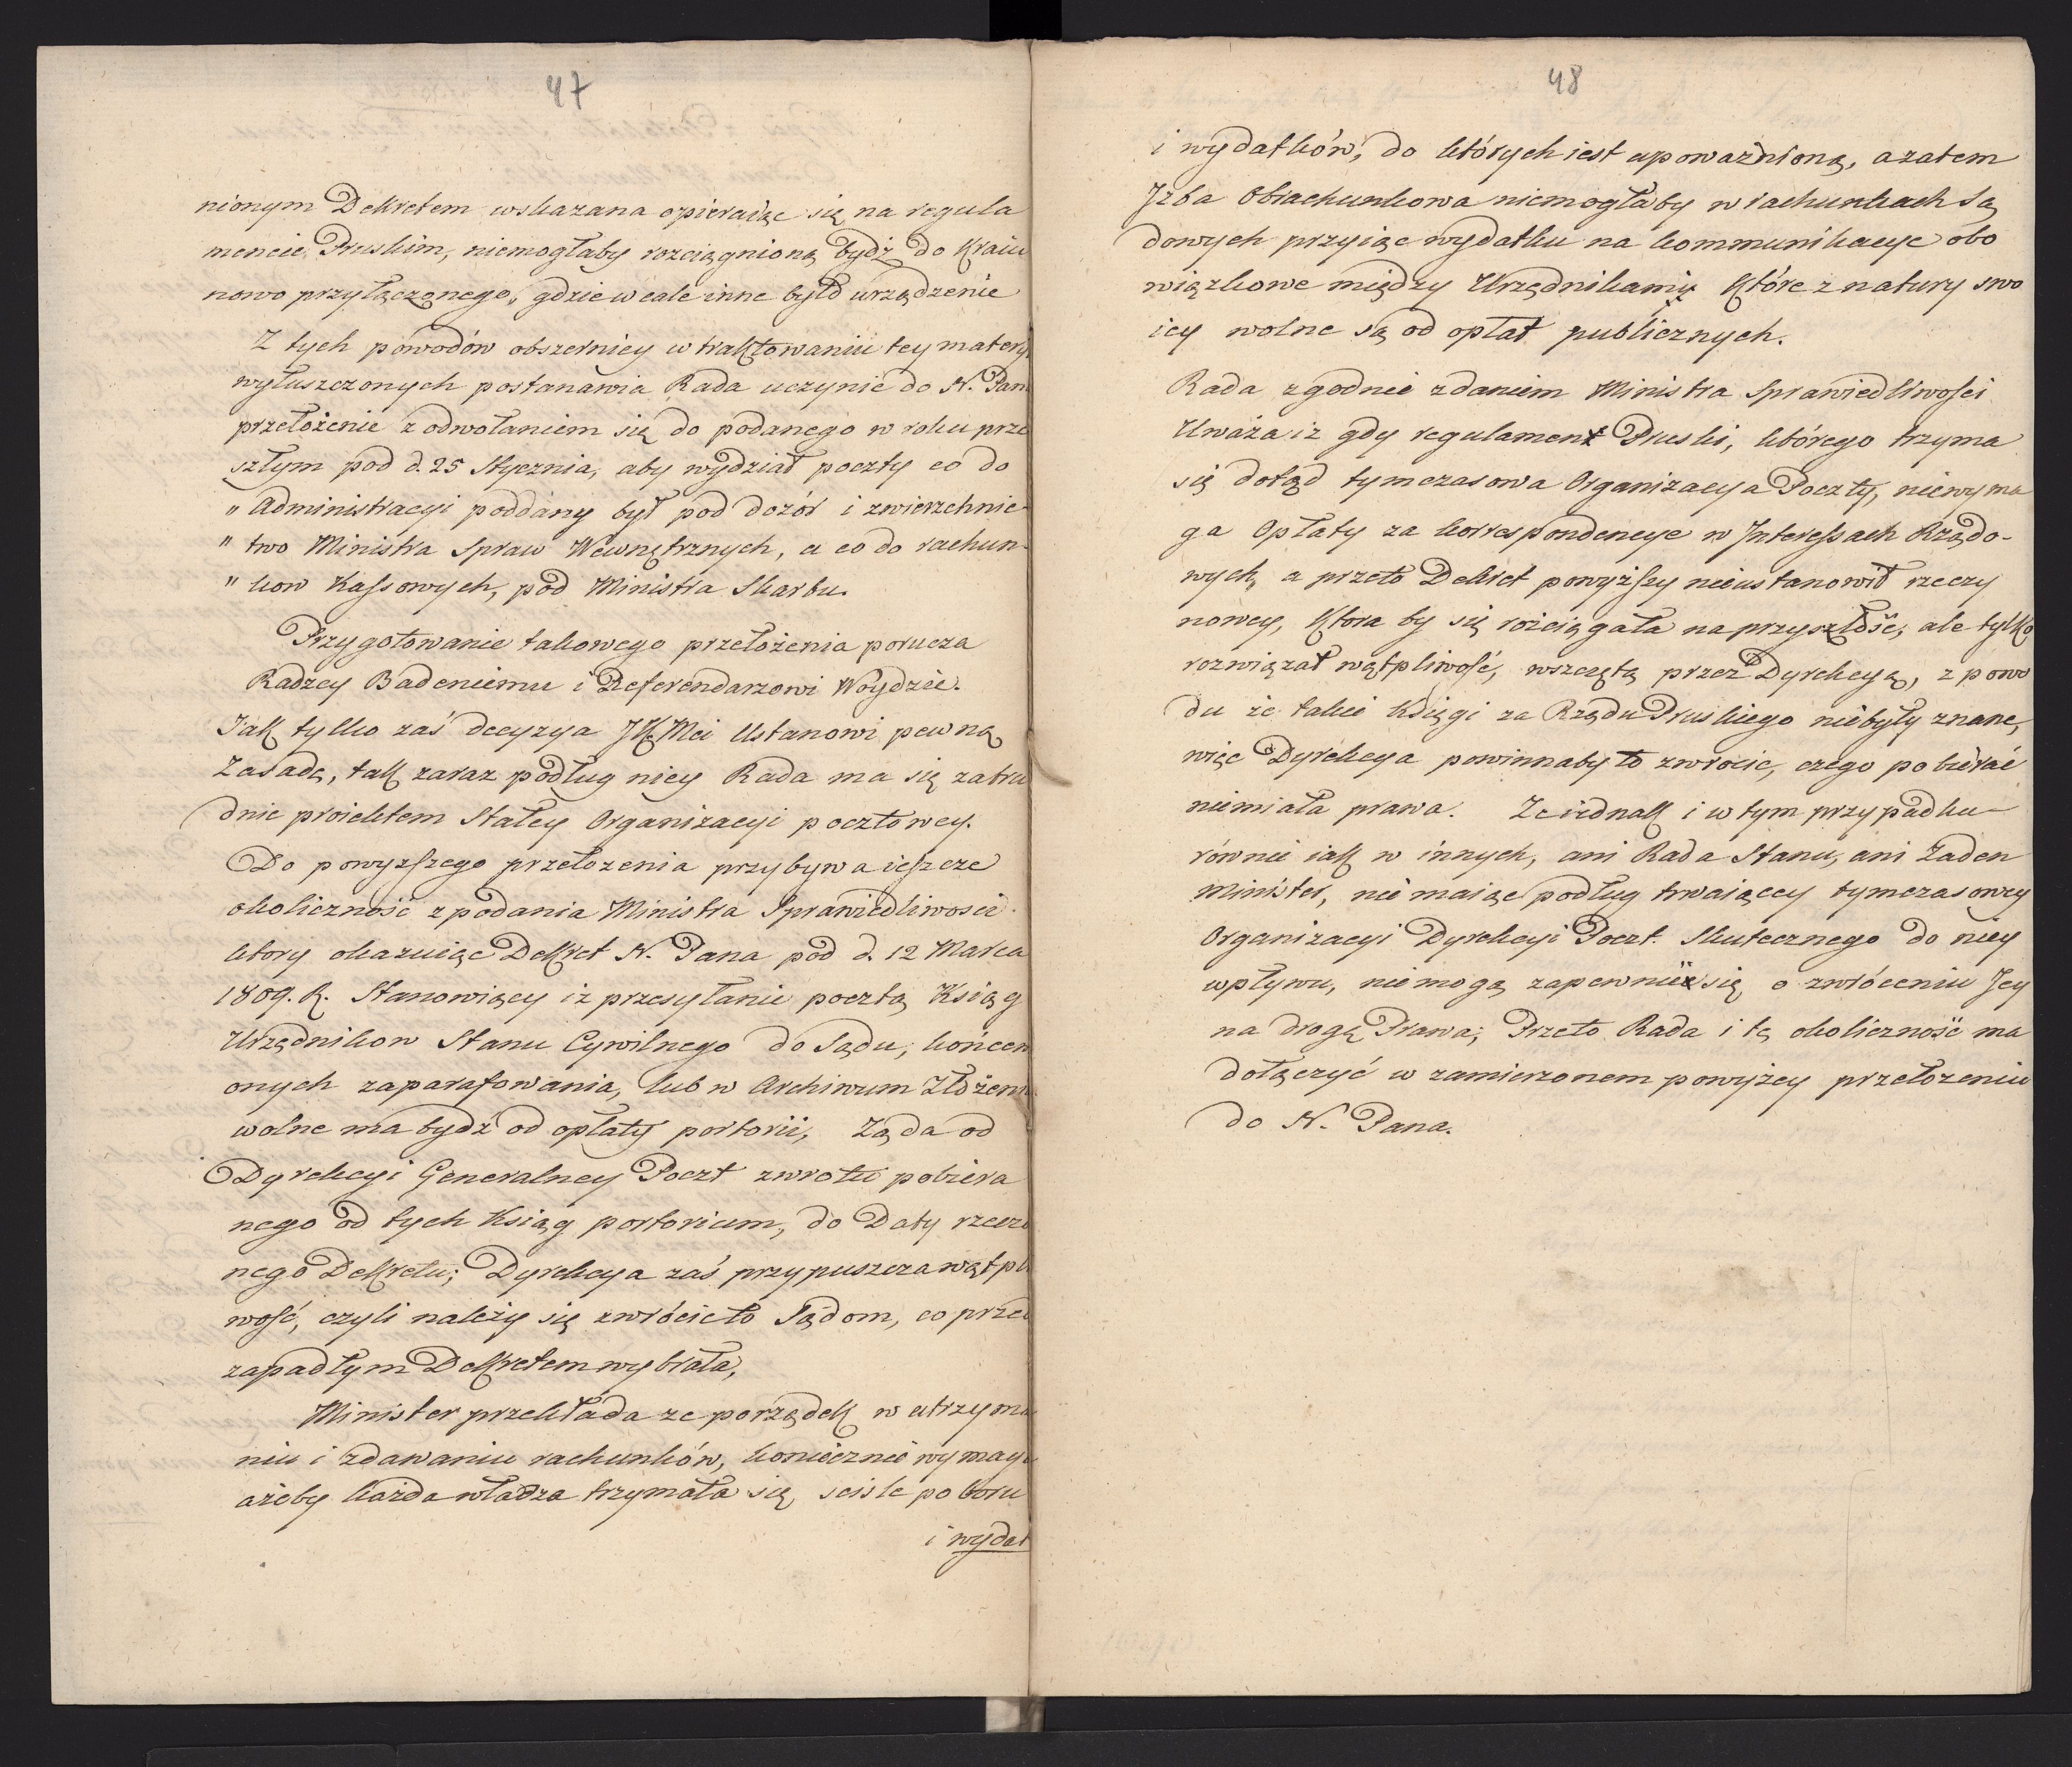 47
nionym Dekretem wskazana opieraiąc się na regula
mencie Pruskim, niemogłaby rozciągnioną bydź do Kraiu
nowo przyłączonego, gdzie wcale inne było urządzenie
Z tych powodów obszerniey w traktowaniu tey matery
wyłuszczonych postanawia Rada uczynić do N. Pan
przełożenie z odwołaniem się do podanego w roku prze
szłym pod d. 25 Stycznia, aby wydział poczty co do
" Administracyi poddany był pod dozór i zwierzchnic
" two Ministra Spraw Wewnętrznych, a co do rachun-
" kow Kassowych, pod Ministra Skarbu.
Przygotowanie takowego przełożenia porucza
Radzcy Badeniemu i Referendarzowi Woydzie.
Jak tylko zaś decyzya JKMci Ustanowi pewną
Zasadę, tak zaraz podług niey Rada ma się zatru
dnic proiektem Stałey Organizacyi pocztowey.
Do powyzszego przełozenia przybywa ieszcze
okoliczność z podania Ministra Sprawiedliwosci
ktory okazuiąc Dekret N. Pana pod d. 12 Marca
1809. R. Stanowiący iz przesyłanie pocztą Ksiąg
Urzędnikow Stanu Cywilnego do Sądu, końcem
onych zaparafowania, lub w Archiwum Złożeni
wolne ma bydź od opłaty portorii, Ząda od
Dyrekcyi Generalney Poczt zwrotu pobiera
nego od tych Ksiąg portorium, do Daty rzeczo
nego Dekretu; Dyrekcya zaś przypuszcza wątpli
wość, czyli należy się zwrócic to Sądom, co przed
zapadłym Dekretem wybrała,
Minister przekłada ze porządek w utrzyma
niu i zdawaniu rachunków, koniecznie wymaga
ażeby każda władza trzymała się scisle poboru
i wydat
48
i wydatków, do których iest upoważnioną, azatem
Jzba Obrachunkowa niemogłaby w rachunkach Są
dowych przyiąc wydatku na kommunikacye obo
wiązkowe między Urzędnikami, Które z natury swo
iey wolne są od opłat publicznych.
Rada zgodnie zdaniem Ministra Sprawiedliwości
Uważa iz gdy regulament Pruski, którego trzyma
się dotąd tymczasowa Organizacya Poczty, niewyma
ga Opłaty za korrespondencye w Interessach Rządo-
wych, a przeto Dekret powyższy nieustanowił rzeczy
nowey, Ktora by się rozciągała na przyszłość, ale tylko
rozwiązał wątpliwość, wszczętą przez Dyrekcyą, z powo
du że takie Księgi za Rządu Pruskiego niebyły znane,
więc Dyrekcya powinnaby to zwrocic, czego pobierać
niemiała prawa. Ze iednak i w tym przypadku
równie iak w innych, ani Rada Stanu, ani Zaden
Minister, nie maiąc podług trwaiącey tymczasowey
Organizacyi Dyrekcyi Poczt. Skutecznego do niey
wpływu, niemogą zapewnić się o zwróceniu Jey
na drogę Prawa; Przeto Rada i tę okoliczność ma
dołączyć w zamierzonem powyżey przełozeniu
do N. Pana.